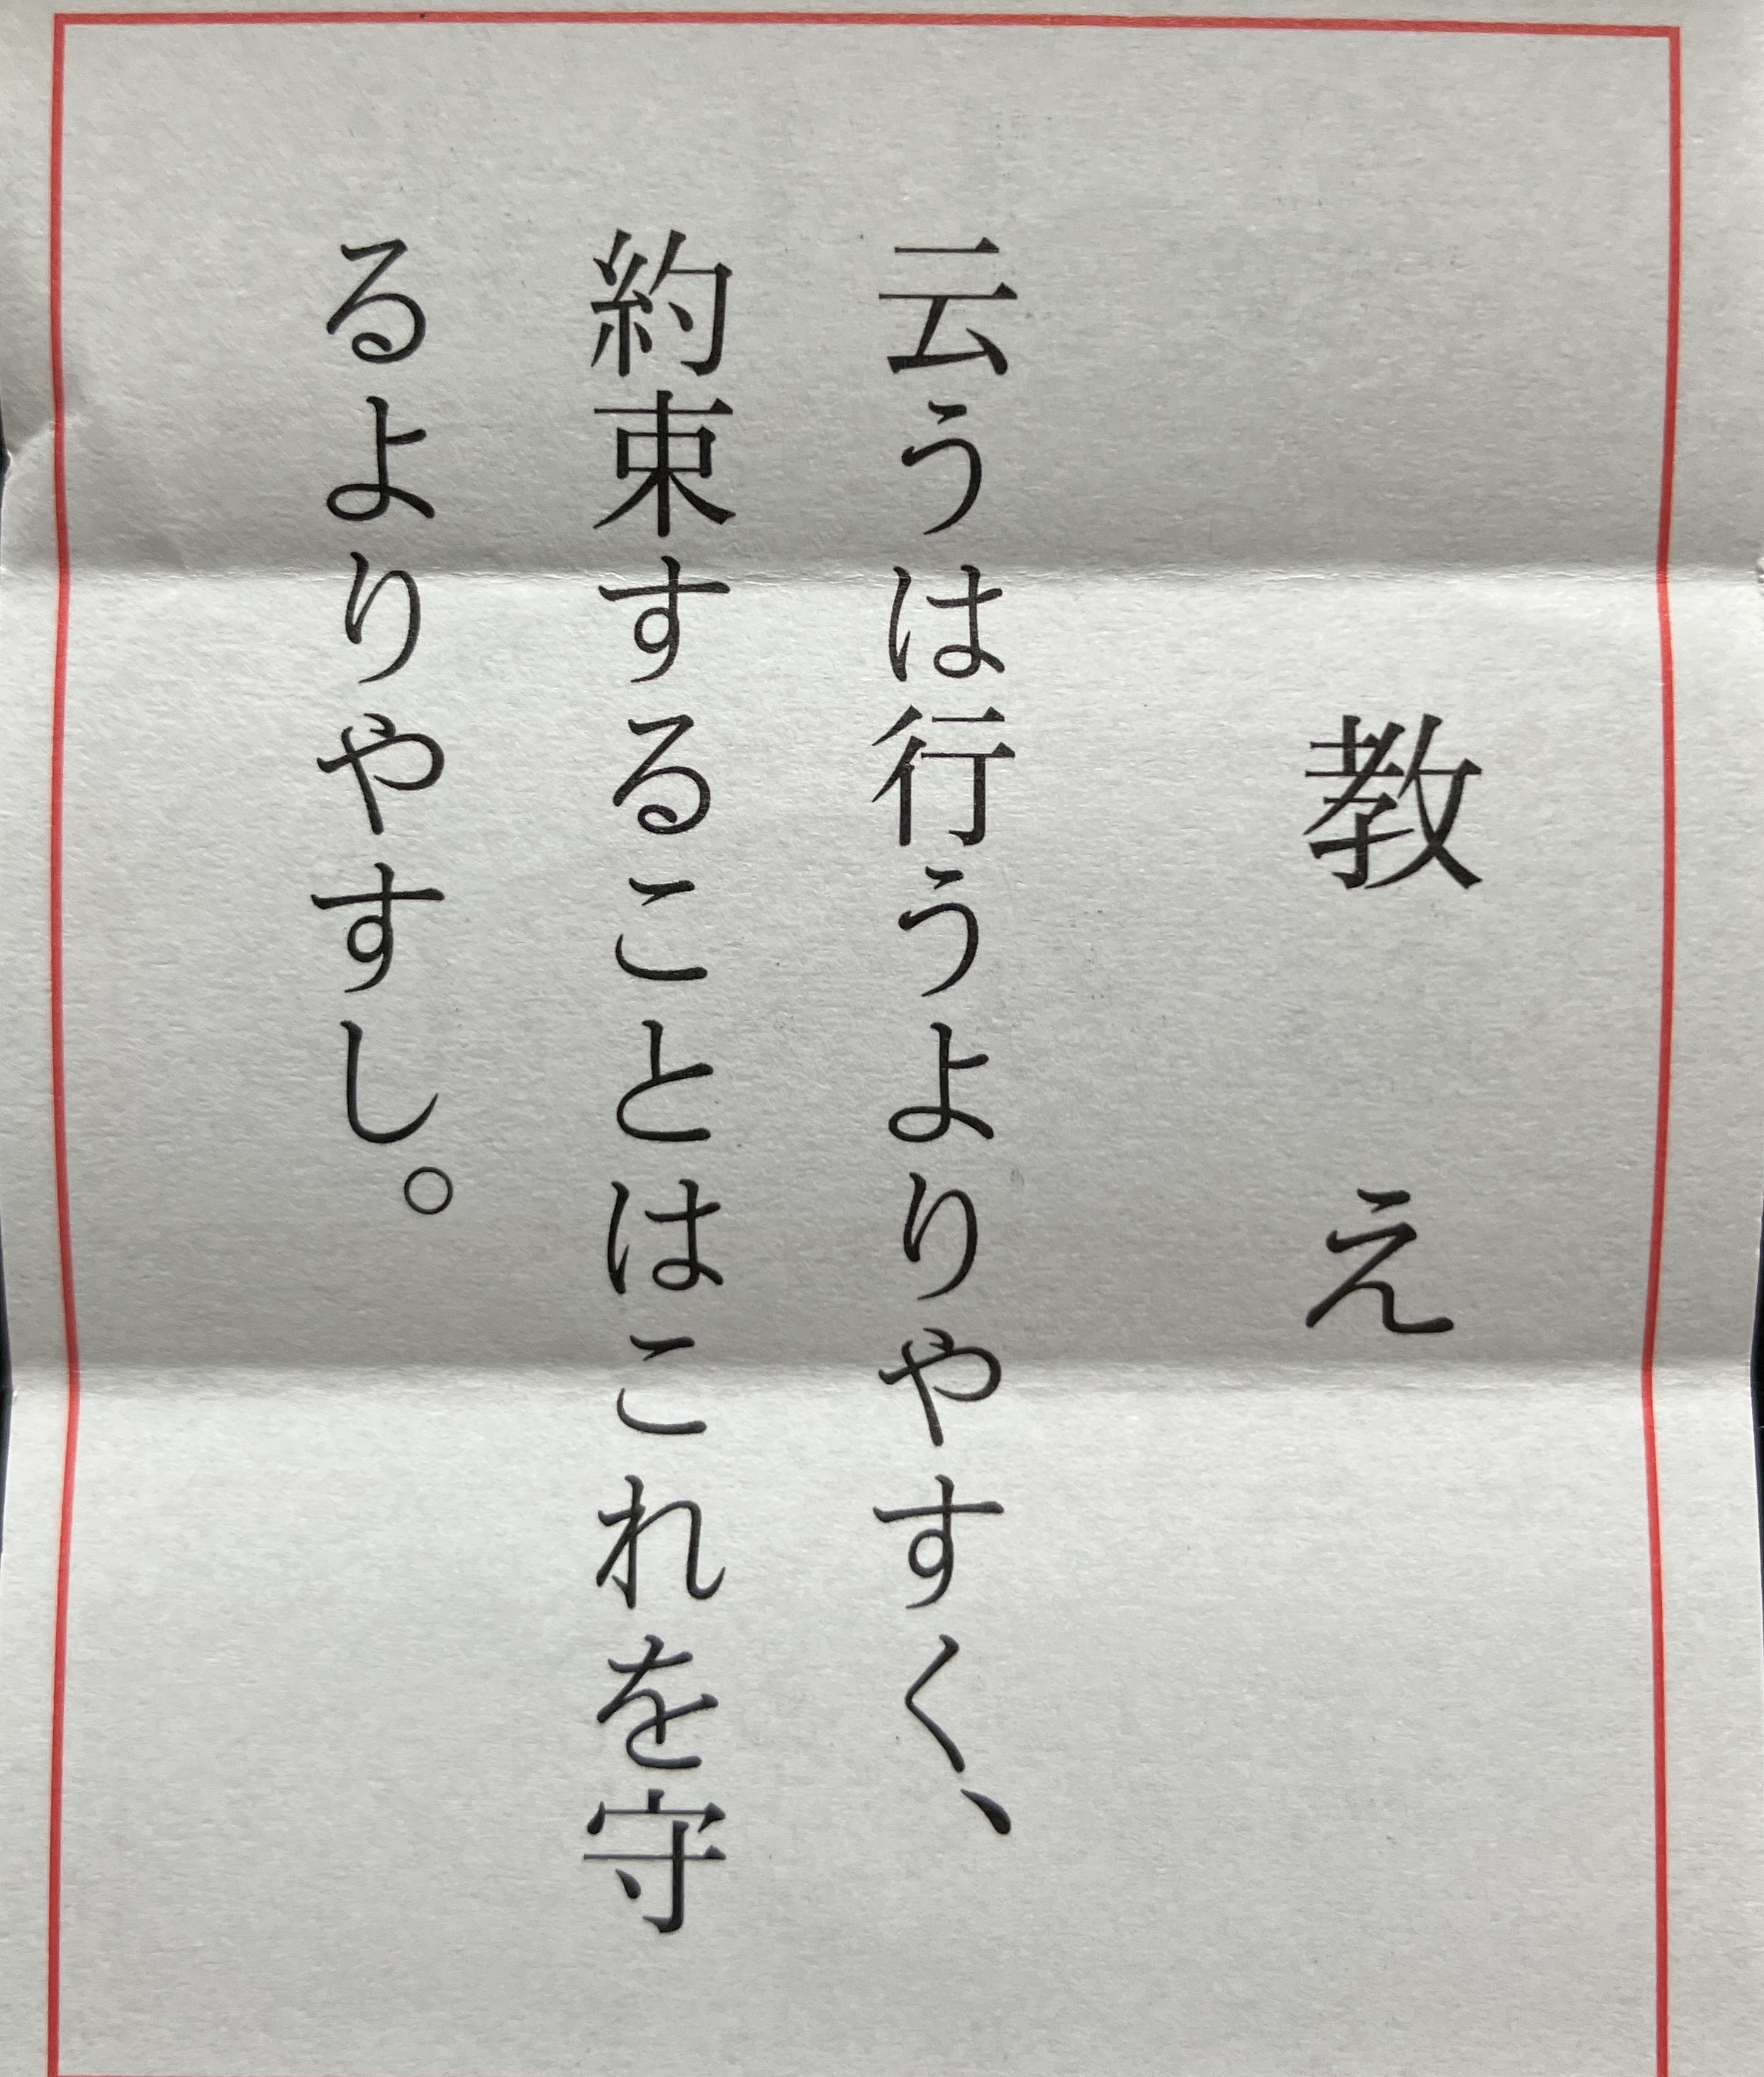 教え
云うは行うよりやすく、
約束することはこれを守
るよりやすし。